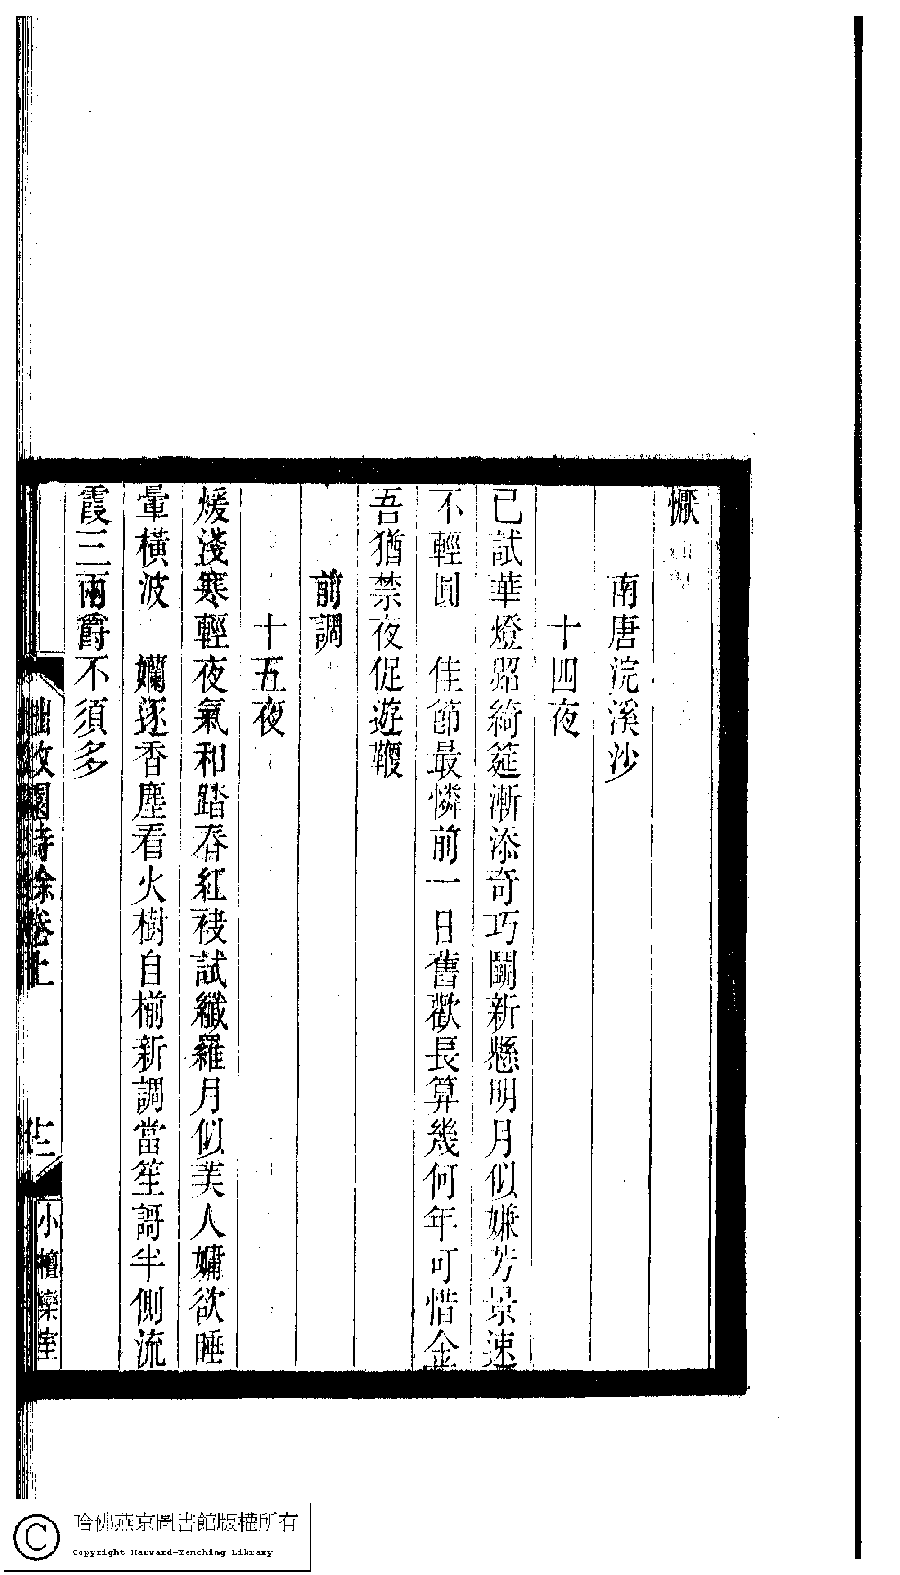 懨
南唐浣溪沙
十四夜
已試華燈照綺筵漸添奇巧鬭新懸明月似嫌芳景速
不輕圓　佳節最憐前一日舊歡長算幾何年可惜金
吾猶禁夜促遊鞭
前調
十五夜
煖淺寒輕夜氣和踏春紅袂試纖羅月似美人慵欲睡
暈橫波　嬾逐香塵看火樹自搊新調當笙謌半側流
霞三兩爵不須多
拙政園詩餘卷上
小檀欒室
哈佛燕京圖書館版權所有
Copyright Harvard-Yenching Library